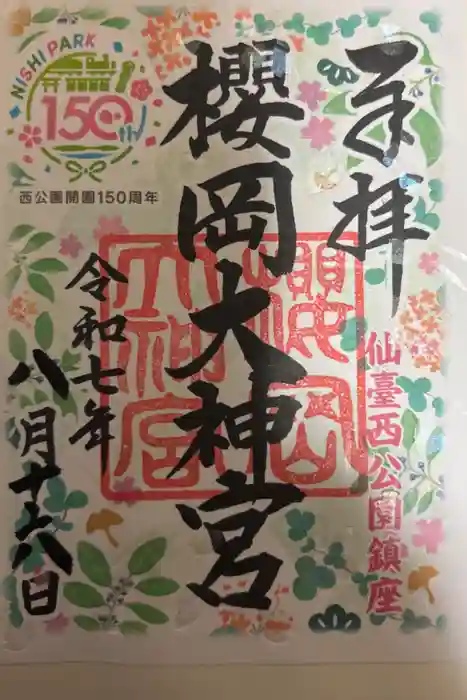 NISHI PARK
150th
西公園開園150周年
奉拝
仙臺西公園鎮座
櫻岡大神宮
櫻岡大神宮
令和七年
八月十六日